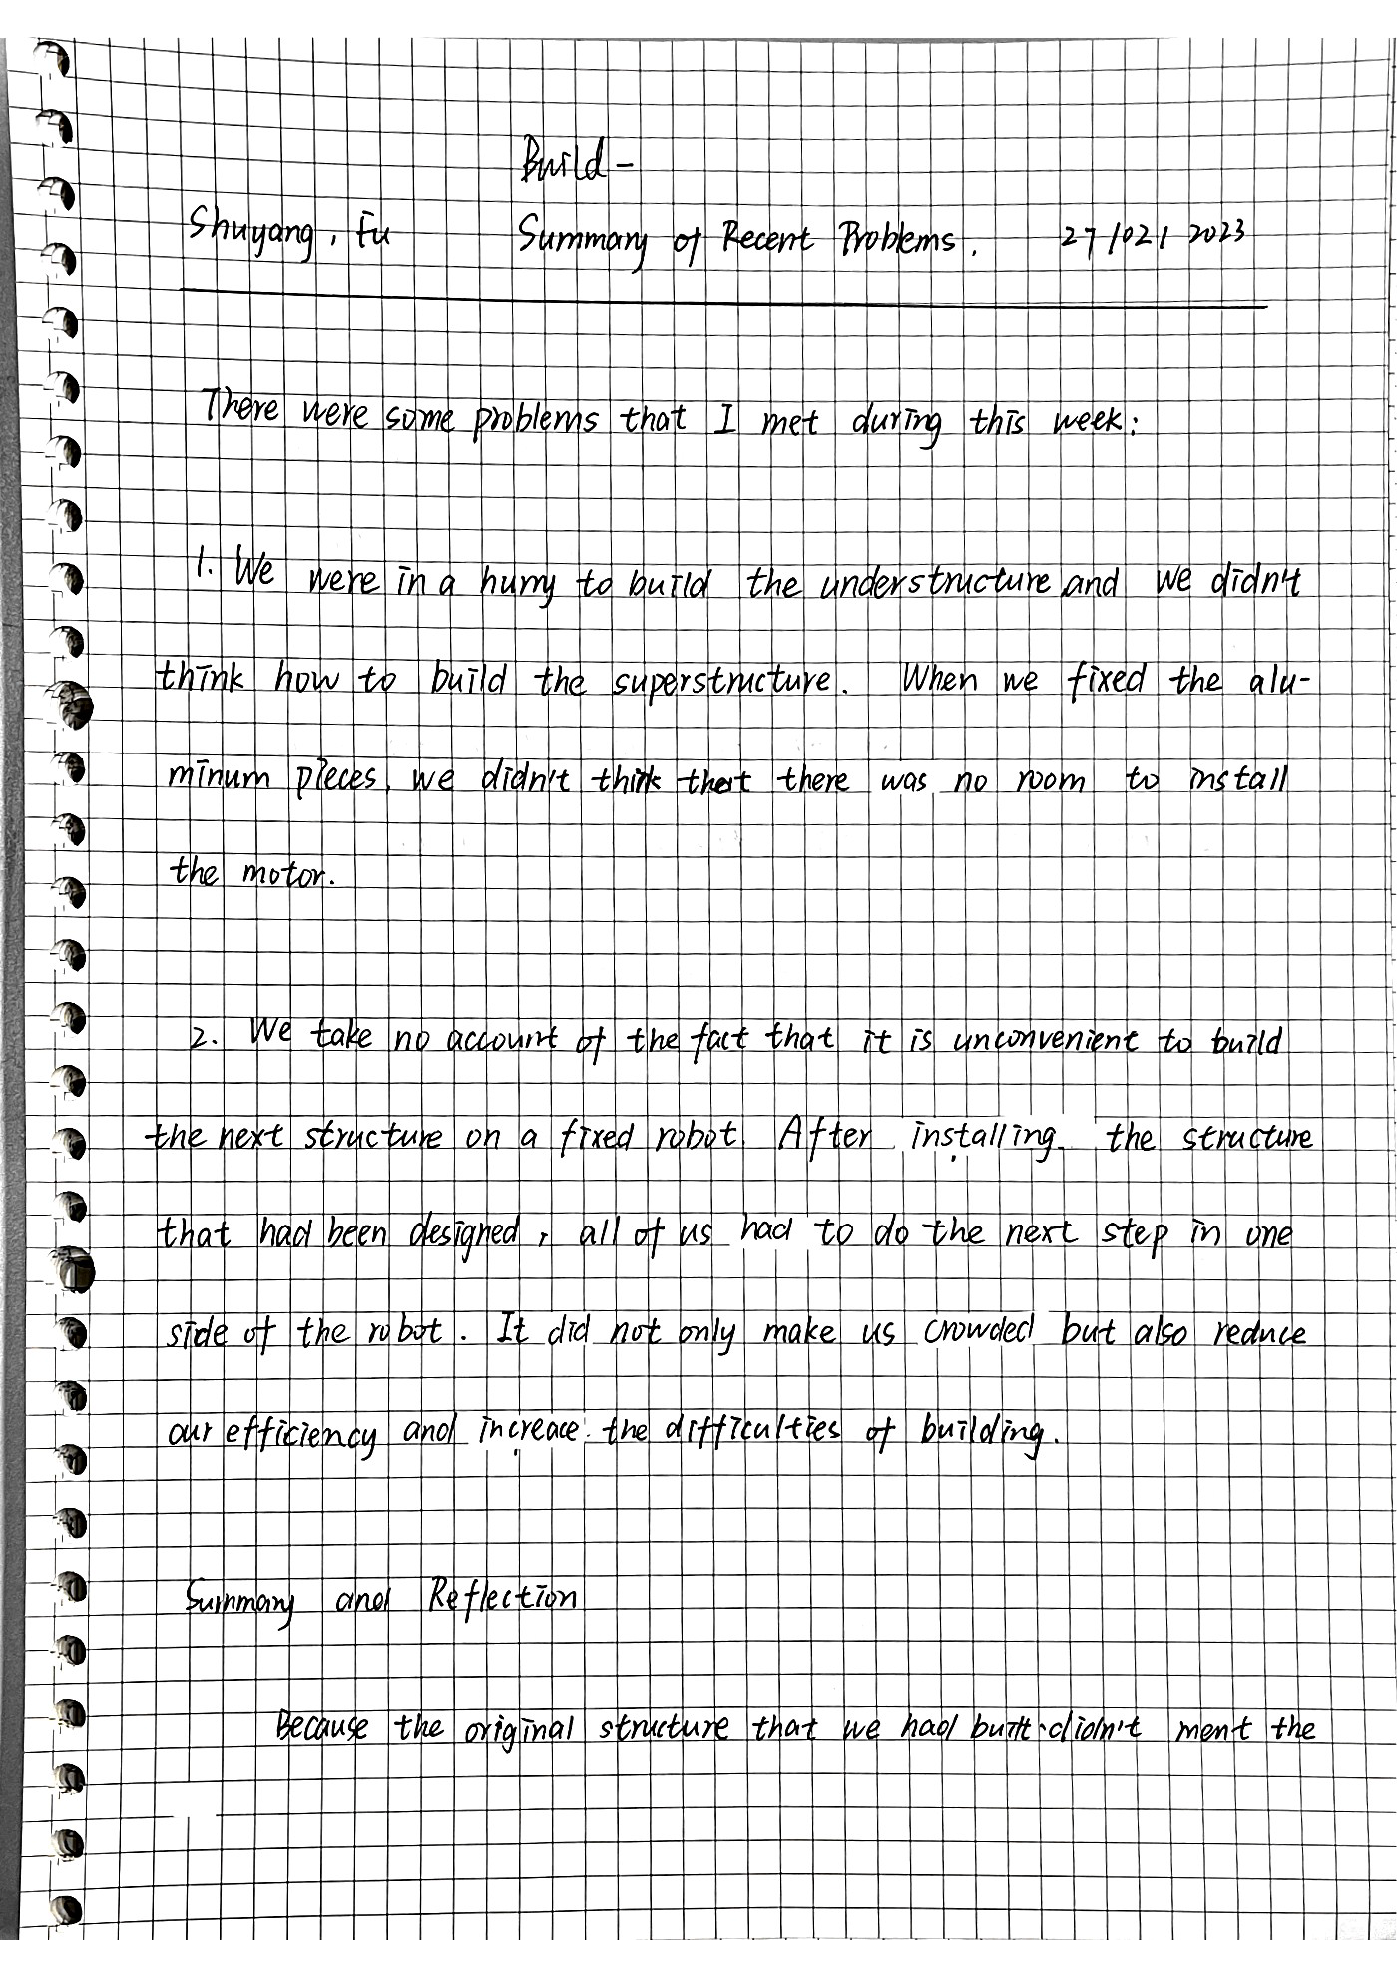 Build -
Shuyang, Fu Summary of Recent Problems. 27/02/2023
There were some problems that I met during this week:
1. We were in a hurry to build the understructure and we didn't
think how to build the superstructure. When we fixed the alu-
minum pieces, we didn't think that there was no room to install
the motor.
2. We take no account of the fact that it is unconvenient to build
the next structure on a fixed robot. After installing the structure
that had been designed, all of us had to do the next step in one
side of the robot. It did not only make us crowded but also reduce
our efficiency and increace the difficulties of building.
Summary and Reflection
Because the original structure that we had built didn't ment the